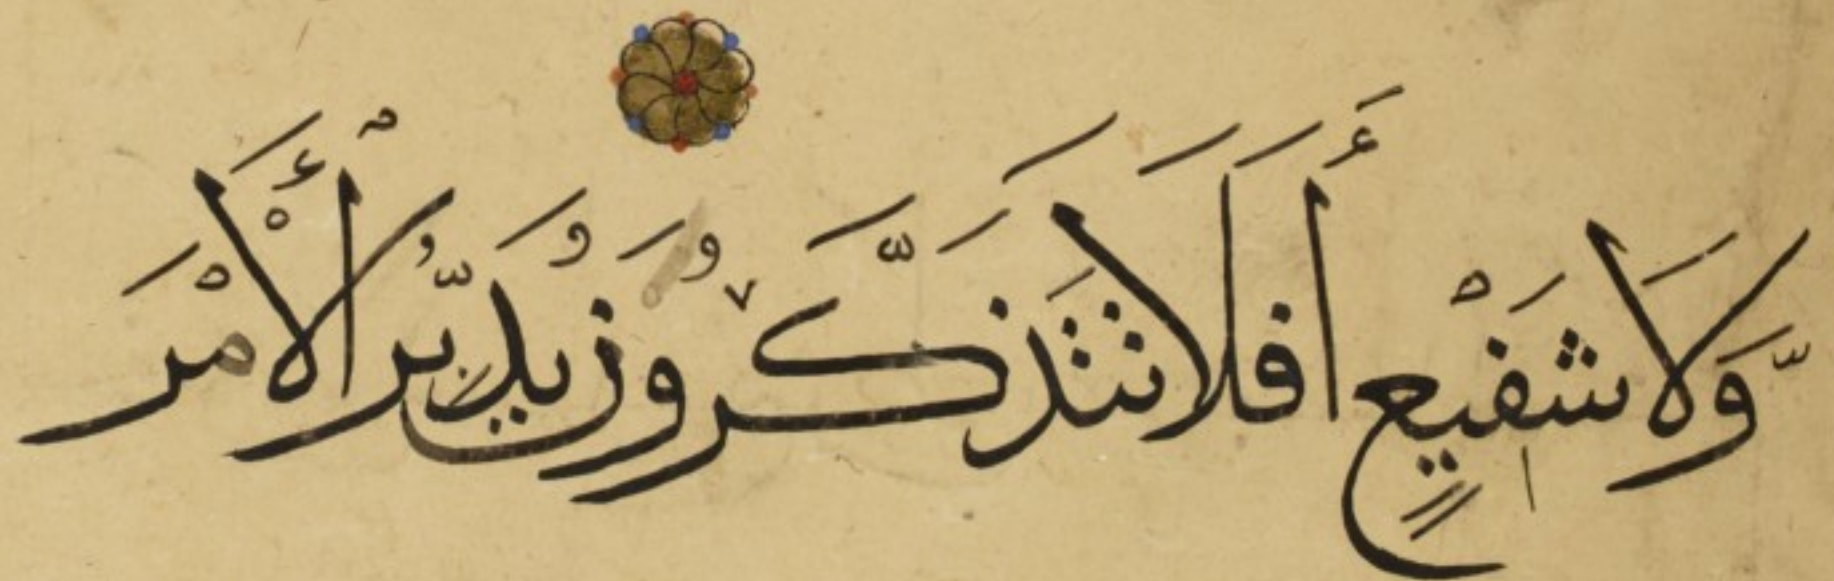 وَّلَا شَفِيْعٍ أَفَلَا تَتَذَكَّرُوْنَ يُدَبِّرُ الْأَمْرَ